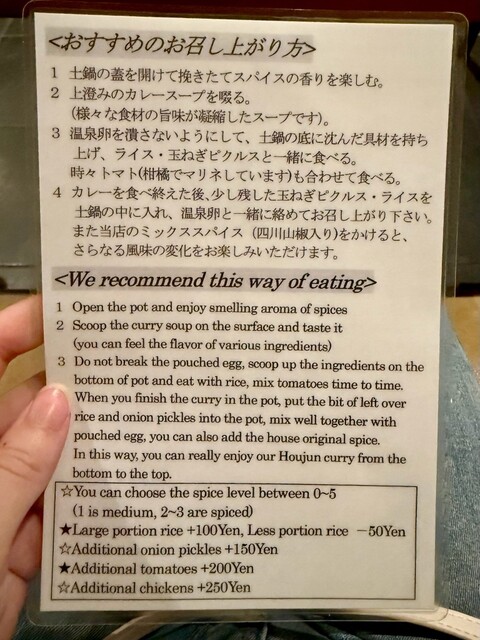 <おすすめのお召し上がり方>
1 土鍋の蓋を開けて挽きたてスパイスの香りを楽しむ。
2 上澄みのカレースープを啜る。
(様々な食材の旨味が凝縮したスープです)。
3 温泉卵を潰さないようにして、土鍋の底に沈んだ具材を持ち
上げ、ライス・玉ねぎピクルスと一緒に食べる。
時々トマト(柑橘でマリネしています)も合わせて食べる。
4 カレーを食べ終えた後、少し残した玉ねぎピクルス・ライスを
土鍋の中に入れ、温泉卵と一緒に絡めてお召し上がり下さい。
また当店のミックススパイス (四川山椒入り)をかけると、
さらなる風味の変化をお楽しみいただけます。
<We recommend this way of eating>
1 Open the pot and enjoy smelling aroma of spices
2 Scoop the curry soup on the surface and taste it
(you can feel the flavor of various ingredients)
3 Do not break the pouched egg, scoop up the ingredients on the
bottom of pot and eat with rice, mix tomatoes time to time.
When you finish the curry in the pot, put the bit of left over
rice and onion pickles into the pot, mix well together with
pouched egg, you can also add the house original spice.
In this way, you can really enjoy our Houjun curry from the
bottom to the top.
☆You can choose the spice level between 0~5
(1 is medium, 2~3 are spiced)
★Large portion rice +100Yen, Less portion rice －50Yen
☆Additional onion pickles +150Yen
★Additional tomatoes +200Yen
☆Additional chickens +250Yen